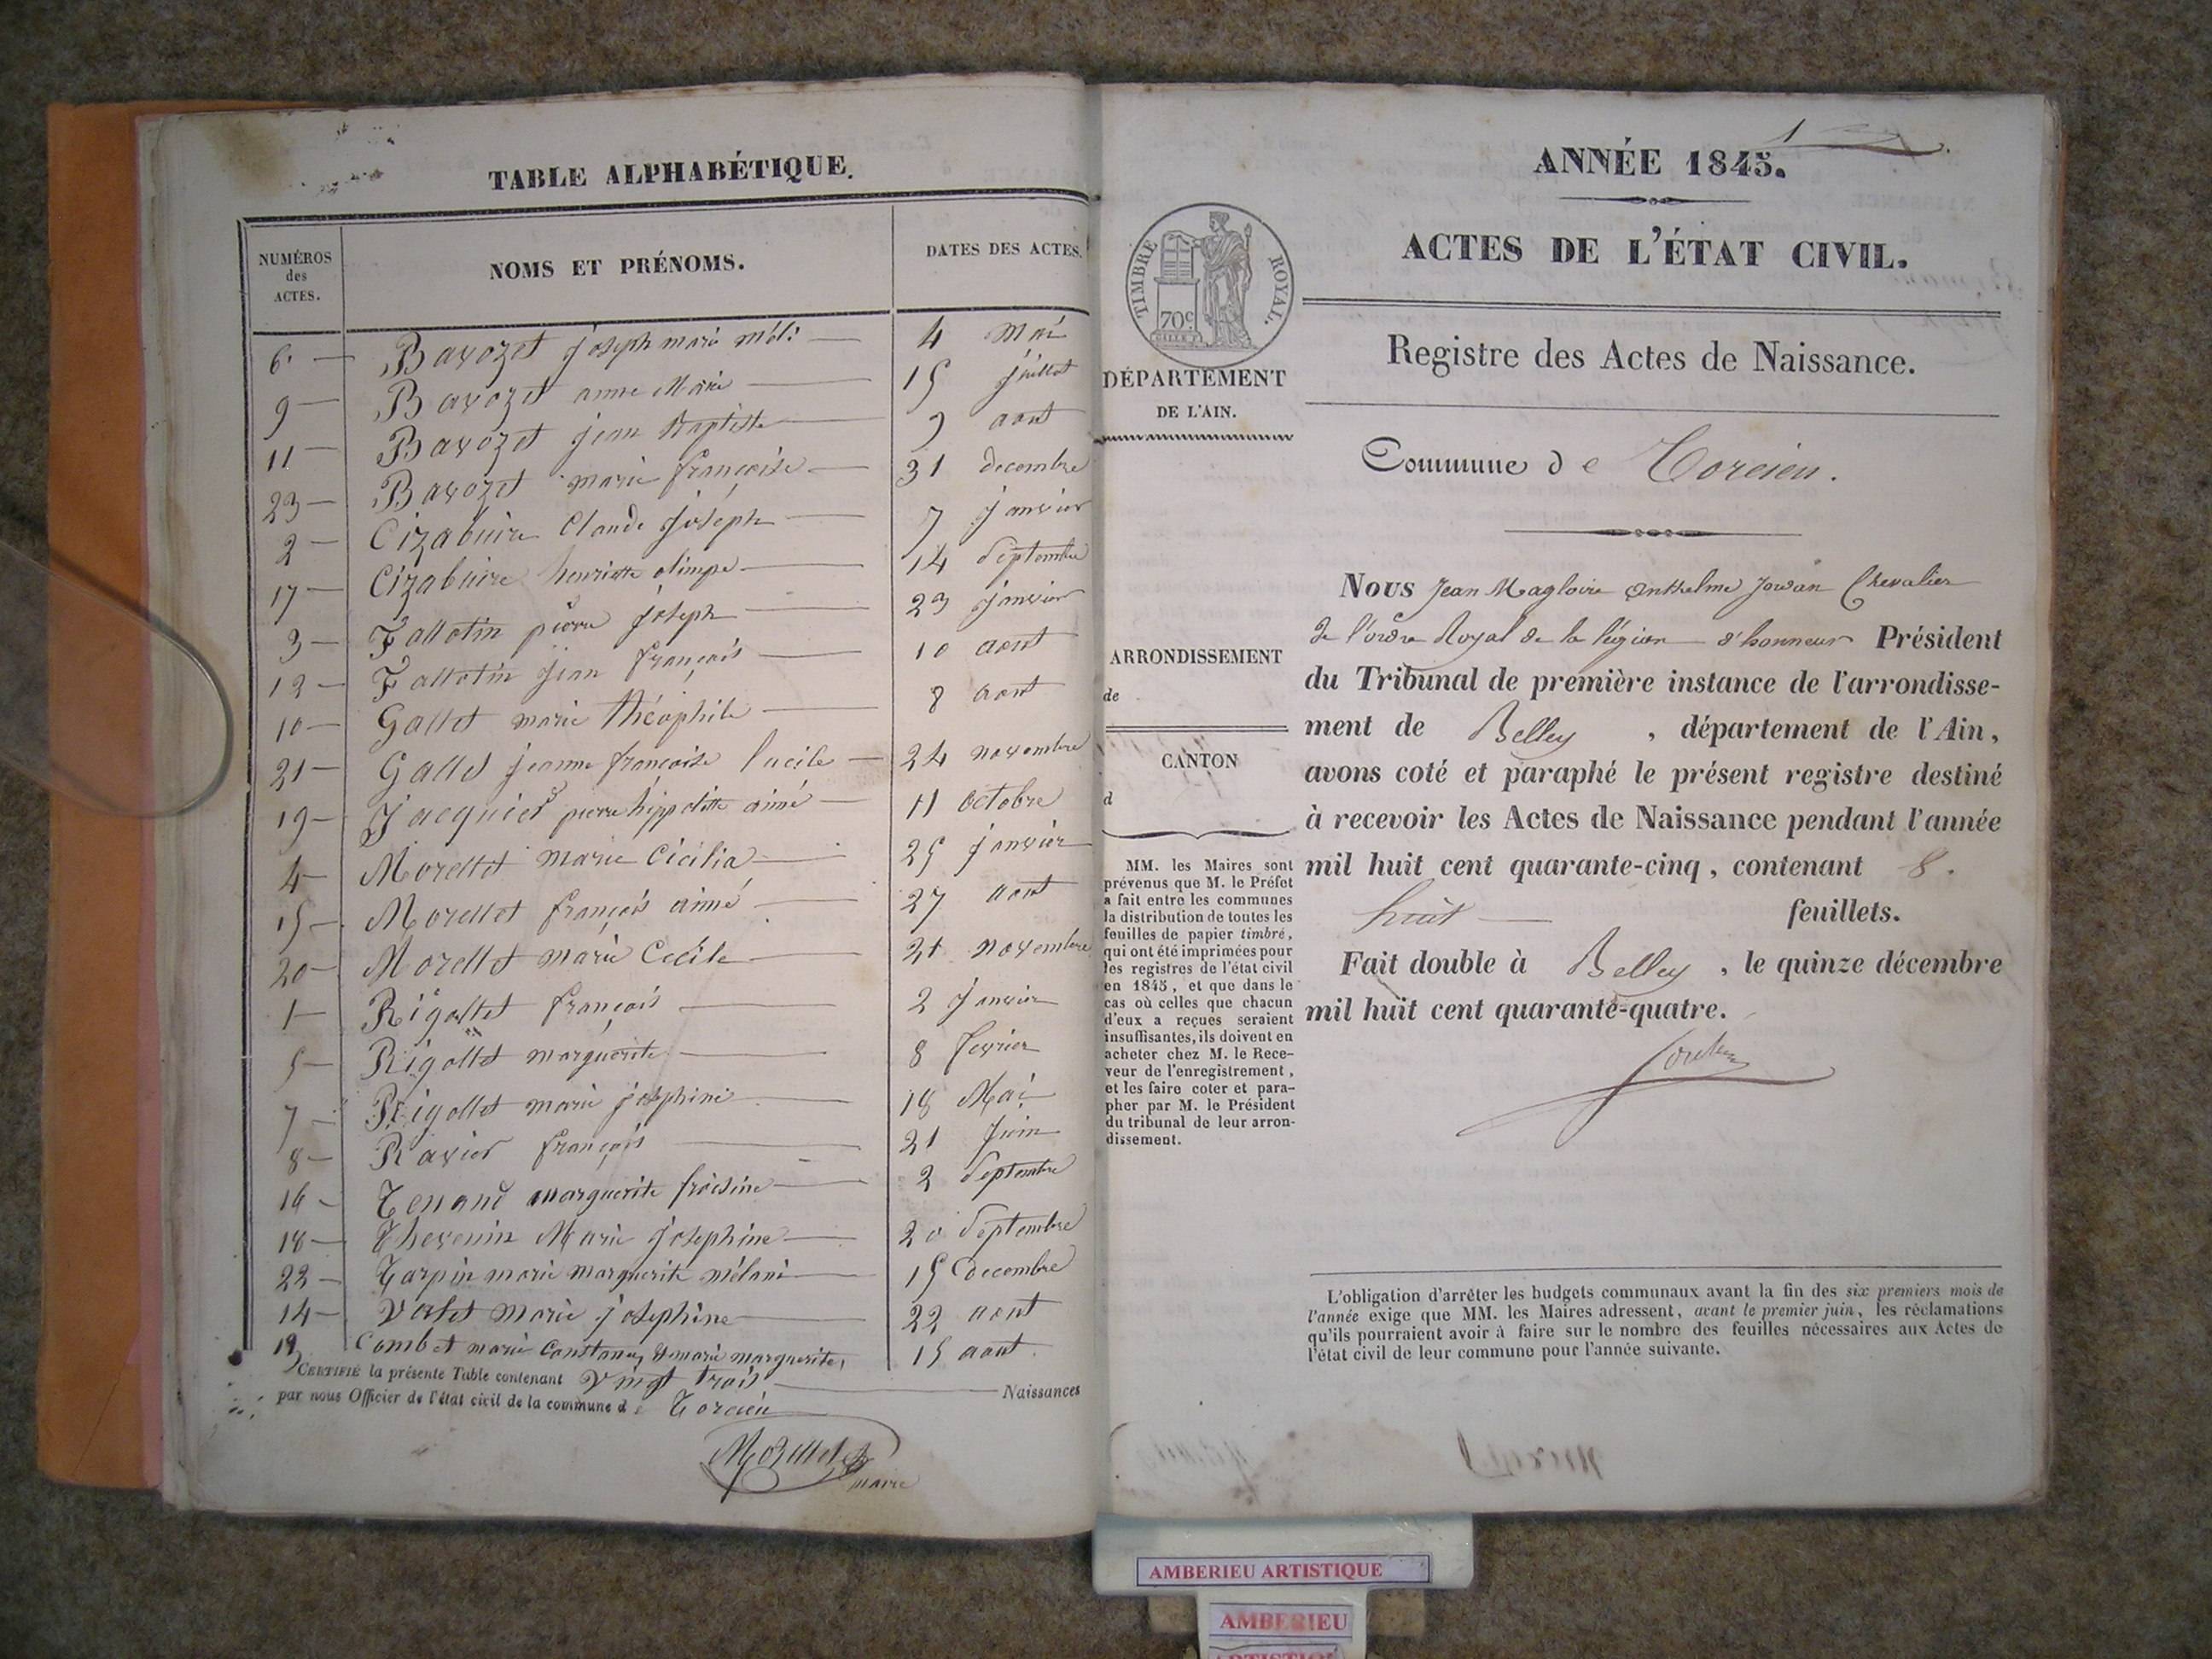 TABLE ALPHABÉTIQUE.
NUMÉROS des ACTES. NOMS ET PRÉNOMS. DATES DES ACTES.
6 Bavozet joseph marie 4 Mai
9 Bavozet anne Marie 15 juillet
11 Bavozet jean Baptiste 9 aout
23 Bavozet marie françoise 31 decembre
2 Cizabuire Claude joseph 7 janvier
17 Cizabuire henriette olimpe 14 septembre
3 Fallotin pierre joseph 23 janvier
12 Fallotin jean françois 10 aout
10 Gallet marie théophile 8 aout
21 Gallet jeanne francoise lucile 24 novembre
19 Jacquier pierre hippolitte aimé 11 octobre
4 Morellet marie Cicilia 25 janvier
15 Morellet françois aimé 27 aout
20 Morellet marie Cecile 21 novembre
1 Rigollet françois 2 janvier
5 Rigollet marguerite 8 fevrier
7 Rigollet marie josephine 18 Mai
8 Ravier françois 21 juin
16 Tenand marguerite froisine 2 septembre
18 Thevenin Marie josephine 20 septembre
22 Tarpin marie marguerite mélanie 15 decembre
14 Valet marie josephine 22 aout
13 Combet marie Constance, & marie marguerite, 15 aout.
CERTIFIÉ la présente Table contenant Vingt trois Naissances
par nous Officier de l'état civil de la commune de Torcieu
Morellet
maire
1
ANNÉE 1845.
ACTES DE L'ÉTAT CIVIL.
Registre des Actes de Naissance.
Commune de Torcieu.
TIMBRE ROYAL.
70c.
DÉPARTEMENT
DE L'AIN.
ARRONDISSEMENT
de
CANTON
d
MM. les Maires sont
prévenus que M. le Préfet
a fait entre les communes
la distribution de toutes les
feuilles de papier timbré,
qui ont été imprimées pour
les registres de l'état civil
en 1845, et que dans le
cas où celles que chacun
d'eux a reçues seraient
insuffisantes, ils doivent en
acheter chez M. le Rece-
veur de l'enregistrement,
et les faire coter et para-
pher par M. le Président
du tribunal de leur arron-
dissement.
NOUS Jean Magloire Anthelme Chevalier
de l'ordre Royal de la légion d'honneur Président
du Tribunal de première instance de l'arrondisse-
ment de Belley, département de l'Ain,
avons coté et paraphé le présent registre destiné
à recevoir les Actes de Naissance pendant l'année
mil huit cent quarante-cinq, contenant 8.
huit feuillets.
Fait double à Belley, le quinze décembre
mil huit cent quarante-quatre.
L'obligation d'arrêter les budgets communaux avant la fin des six premiers mois de
l'année exige que MM. les Maires adressent, avant le premier juin, les réclamations
qu'ils pourraient avoir à faire sur le nombre des feuilles nécessaires aux Actes de
l'état civil de leur commune pour l'année suivante.
AMBERIEU ARTISTIQUE
AMBERIEU
ARTISTIQUE